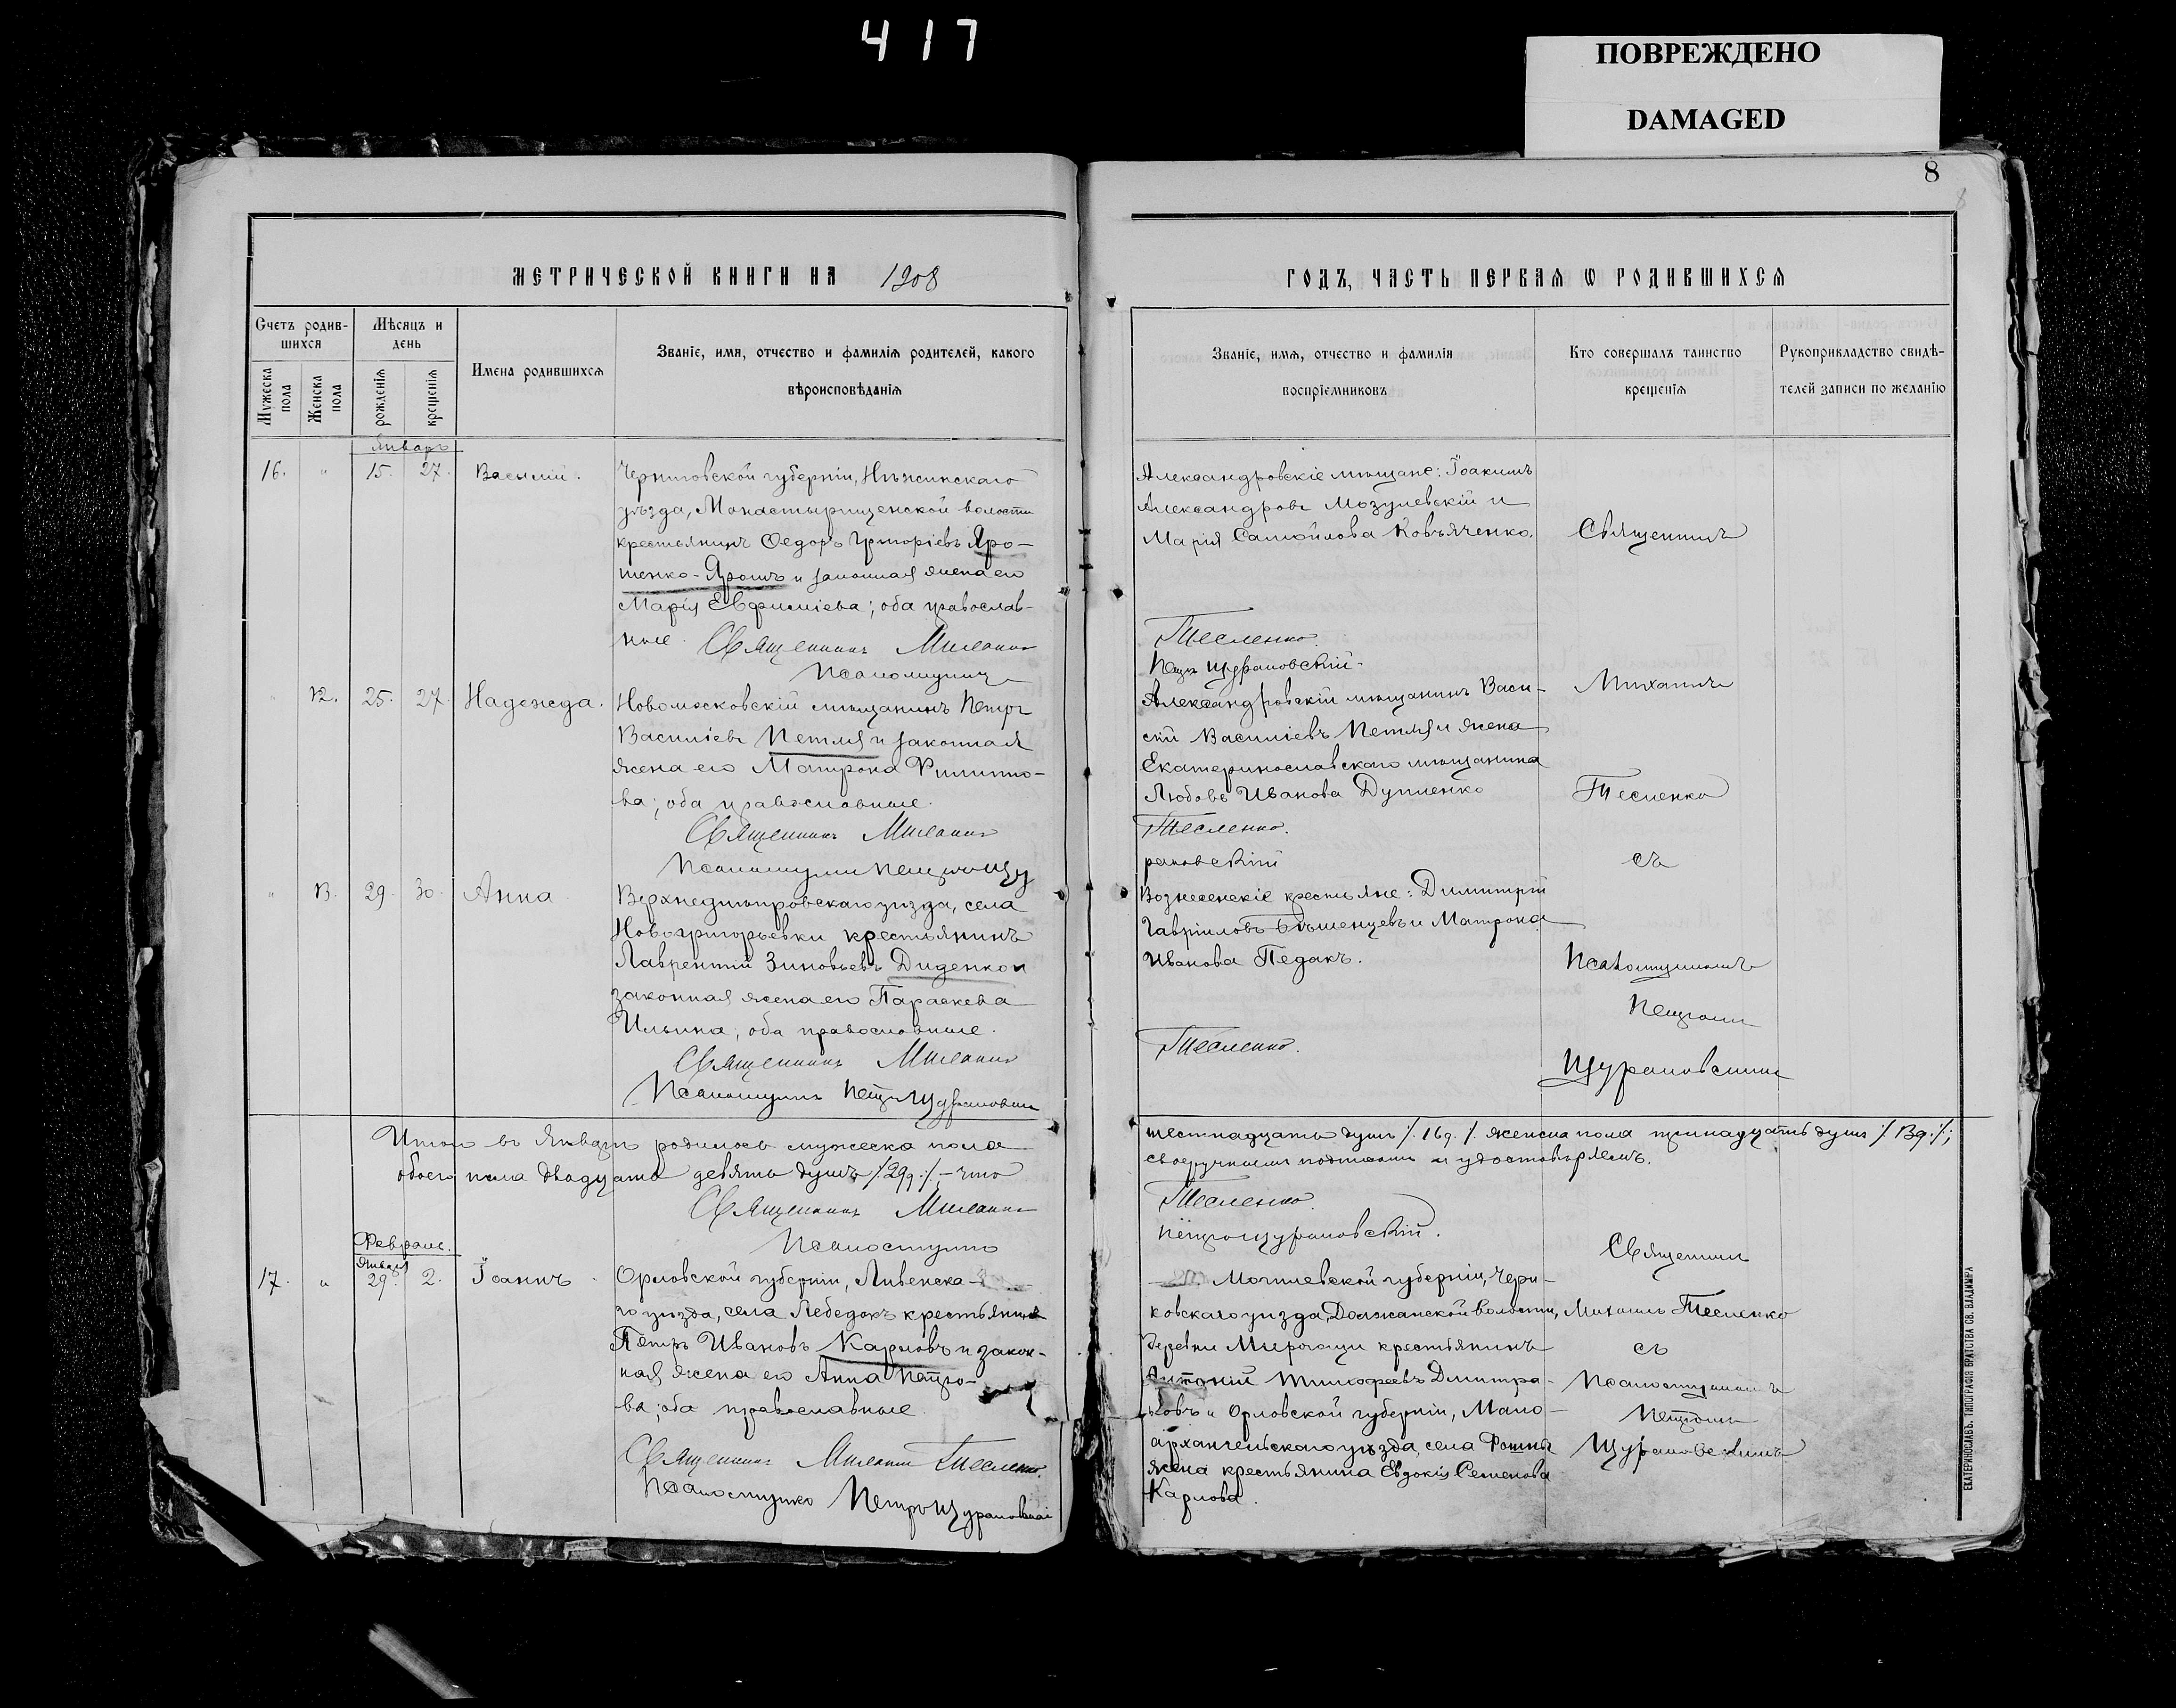 417
ПОВРЕЖДЕНО
DAMAGED
8
МЕТРИЧЕСКОЙ КНИГИ НА 1908
Счетъ родив-
шихся
Мѣсяцъ и
день
Имена родившихся
Званіе, имя, отчество и фамилія родителей, какого
вѣроисповѣданія
Мужеска
пола
Женска
пола
рожденія
крещенія
Январь
16. " 15. 27. Василій.
Черниговской губерніи, Нѣжинскаго
уѣзда, Монастырищенской волости
крестьянинъ Ѳедоръ Григоріевъ Яро-
шенко-Ярошъ и законная жена его
Марія Евфиміева; оба православ-
ные. Священникъ Михаилъ
Псаломщикъ
" 12. 25. 27. Надежда.
Новомосковскій мѣщанинъ Петръ
Василіевъ Петля и законная
жена его Матрона Филиппо-
ва; оба православные.
Священникъ Михаилъ
Псаломщикъ Петръ Щу
" 13. 29. 30. Анна
Верхнеднѣпровскаго уѣзда, села
Новогригорьевки крестьянинъ
Лаврентій Зиновьевъ Диденко и
законная жена его Параскева
Ильина; оба православные.
Священникъ Михаилъ
Псаломщикъ Петръ Щурановскій
Итого въ Январѣ родилось мужеска пола
обоего пола двадцать девять душъ /.29д./,- что
Священникъ Михаилъ
Псаломщикъ
Февраль.
Января
17. " 29. 2. Іоаннъ
Орловской губерніи, Ливенска-
го уѣзда, села Лебедокъ крестьянинъ
Петръ Ивановъ Карловъ и закон-
ная жена его Анна Петро-
ва; оба православные.
Священникъ Михаилъ Тесленко.
Псаломщикъ Петръ Щурановскій
ГОДЪ, ЧАСТЬ ПЕРВАЯ Ѡ РОДИВШИХСЯ
Званіе, имя, отчество и фамилія
воспріемниковъ
Кто совершалъ таинство
крещенія
Рукоприкладство свидѣ-
телей записи по желанію
Александровскіе мѣщане: Іоакимъ
Александровъ Мозулевскій и
Марія Самойлова Ковъяченко.
Тесленко.
Петръ Щурановскій.
Александровскій мѣщанинъ Васи-
лій Василіевъ Петля и жена
Екатеринославскаго мѣщанина
Любовь Иванова Дупленко
Тесленко.
рановскій
Вознесенскіе крестьяне: Димитрій
Гавріиловъ и Матрона
Иванова Педакъ.
Тесленко.
Священникъ
Михаилъ
Тесленко
съ
Псаломщикомъ
Петромъ
Щурановскимъ
шестнадцать душъ /.16д./. женска пола тринадцать душъ /.13д./.;
своеручнымъ подписомъ и удостовѣряемъ.
Тесленко.
Петръ Щурановскій.
Могилевской губерніи, Чери-
ковскаго уѣзда, Должанской волости,
деревни крестьянинъ
Антоній Тимофеевъ Димитра-
ковъ и Орловской губерніи, Мало-
архангельскаго уѣзда, села
жена крестьянина Евдокія Семенова
Карлова.
Священникъ
Михаилъ Тесленко
съ
Псаломщикомъ
Петромъ
Щурановскимъ
ЕКАТЕРИНОСЛАВЪ. ТИПОГРАФІЯ БРАТСТВА СВ. ВЛАДИМІРА